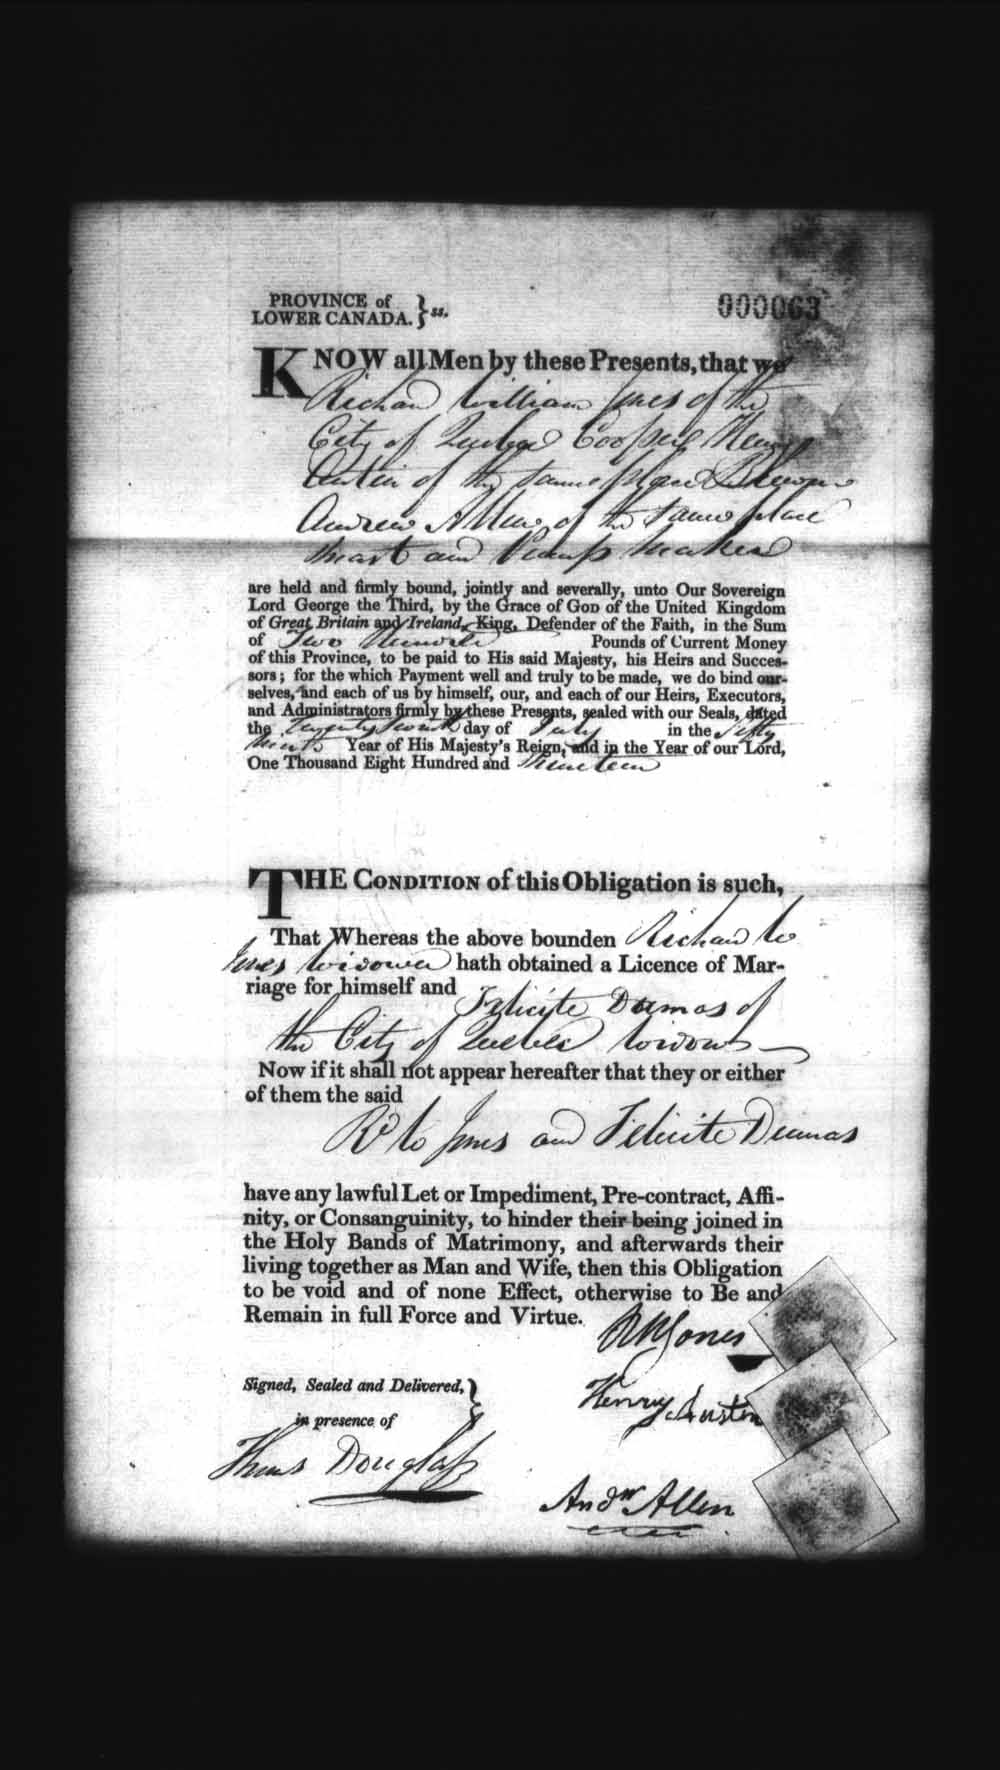 PROVINCE of
LOWER CANADA. } ss.
000063
KNOW all Men by these Presents, that we
Richard William Jones of the
City of Quebec Cooper Henry
Austin of the same place
Andrew Allen of the same place
Mast and Pump Maker
are held and firmly bound, jointly and severally, unto Our Sovereign
Lord George the Third, by the Grace of God of the United Kingdom
of Great Britain and Ireland, King, Defender of the Faith, in the Sum
of Two Hundred Pounds of Current Money
of this Province, to be paid to His said Majesty, his Heirs and Succes-
sors; for the which Payment well and truly to be made, we do bind our-
selves, and each of us by himself, our, and each of our Heirs, Executors,
and Administrators firmly by these Presents, sealed with our Seals, dated
the Twenty day of July in the fifty
Year of His Majesty's Reign, and in the Year of our Lord,
One Thousand Eight Hundred and Nineteen
THE CONDITION of this Obligation is such,
That Whereas the above bounden Richard W
Jones Widower hath obtained a Licence of Mar-
riage for himself and Felicite Dumas of
the City of Quebec Widow
Now if it shall not appear hereafter that they or either
of them the said
Rd W Jones and Felicite Dumas
have any lawful Let or Impediment, Pre-contract, Affi-
nity, or Consanguinity, to hinder their being joined in
the Holy Bands of Matrimony, and afterwards their
living together as Man and Wife, then this Obligation
to be void and of none Effect, otherwise to Be and
Remain in full Force and Virtue.
RW Jones
Signed, Sealed and Delivered, }
Henry Austin
in presence of
Thos Douglass
Andw Allen